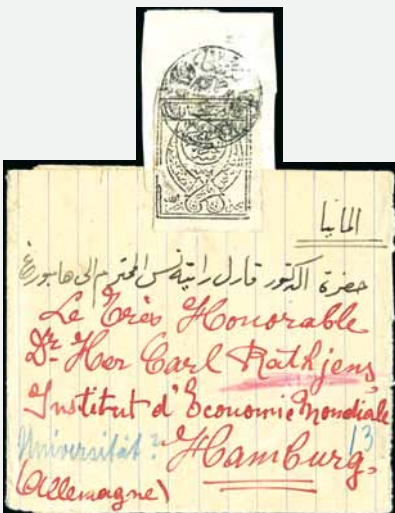 المانيا
حضرة الدكتور قارل راتينس المحترم الى هامبورغ
Le Très Honorable
Dr. Her Carl Rathjens,
Institut d'Economie Mondiale
Universität? Hamburg. 13
(Allemagne)